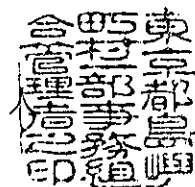 東京都島嶼
町村一部事務組
合管理者之印